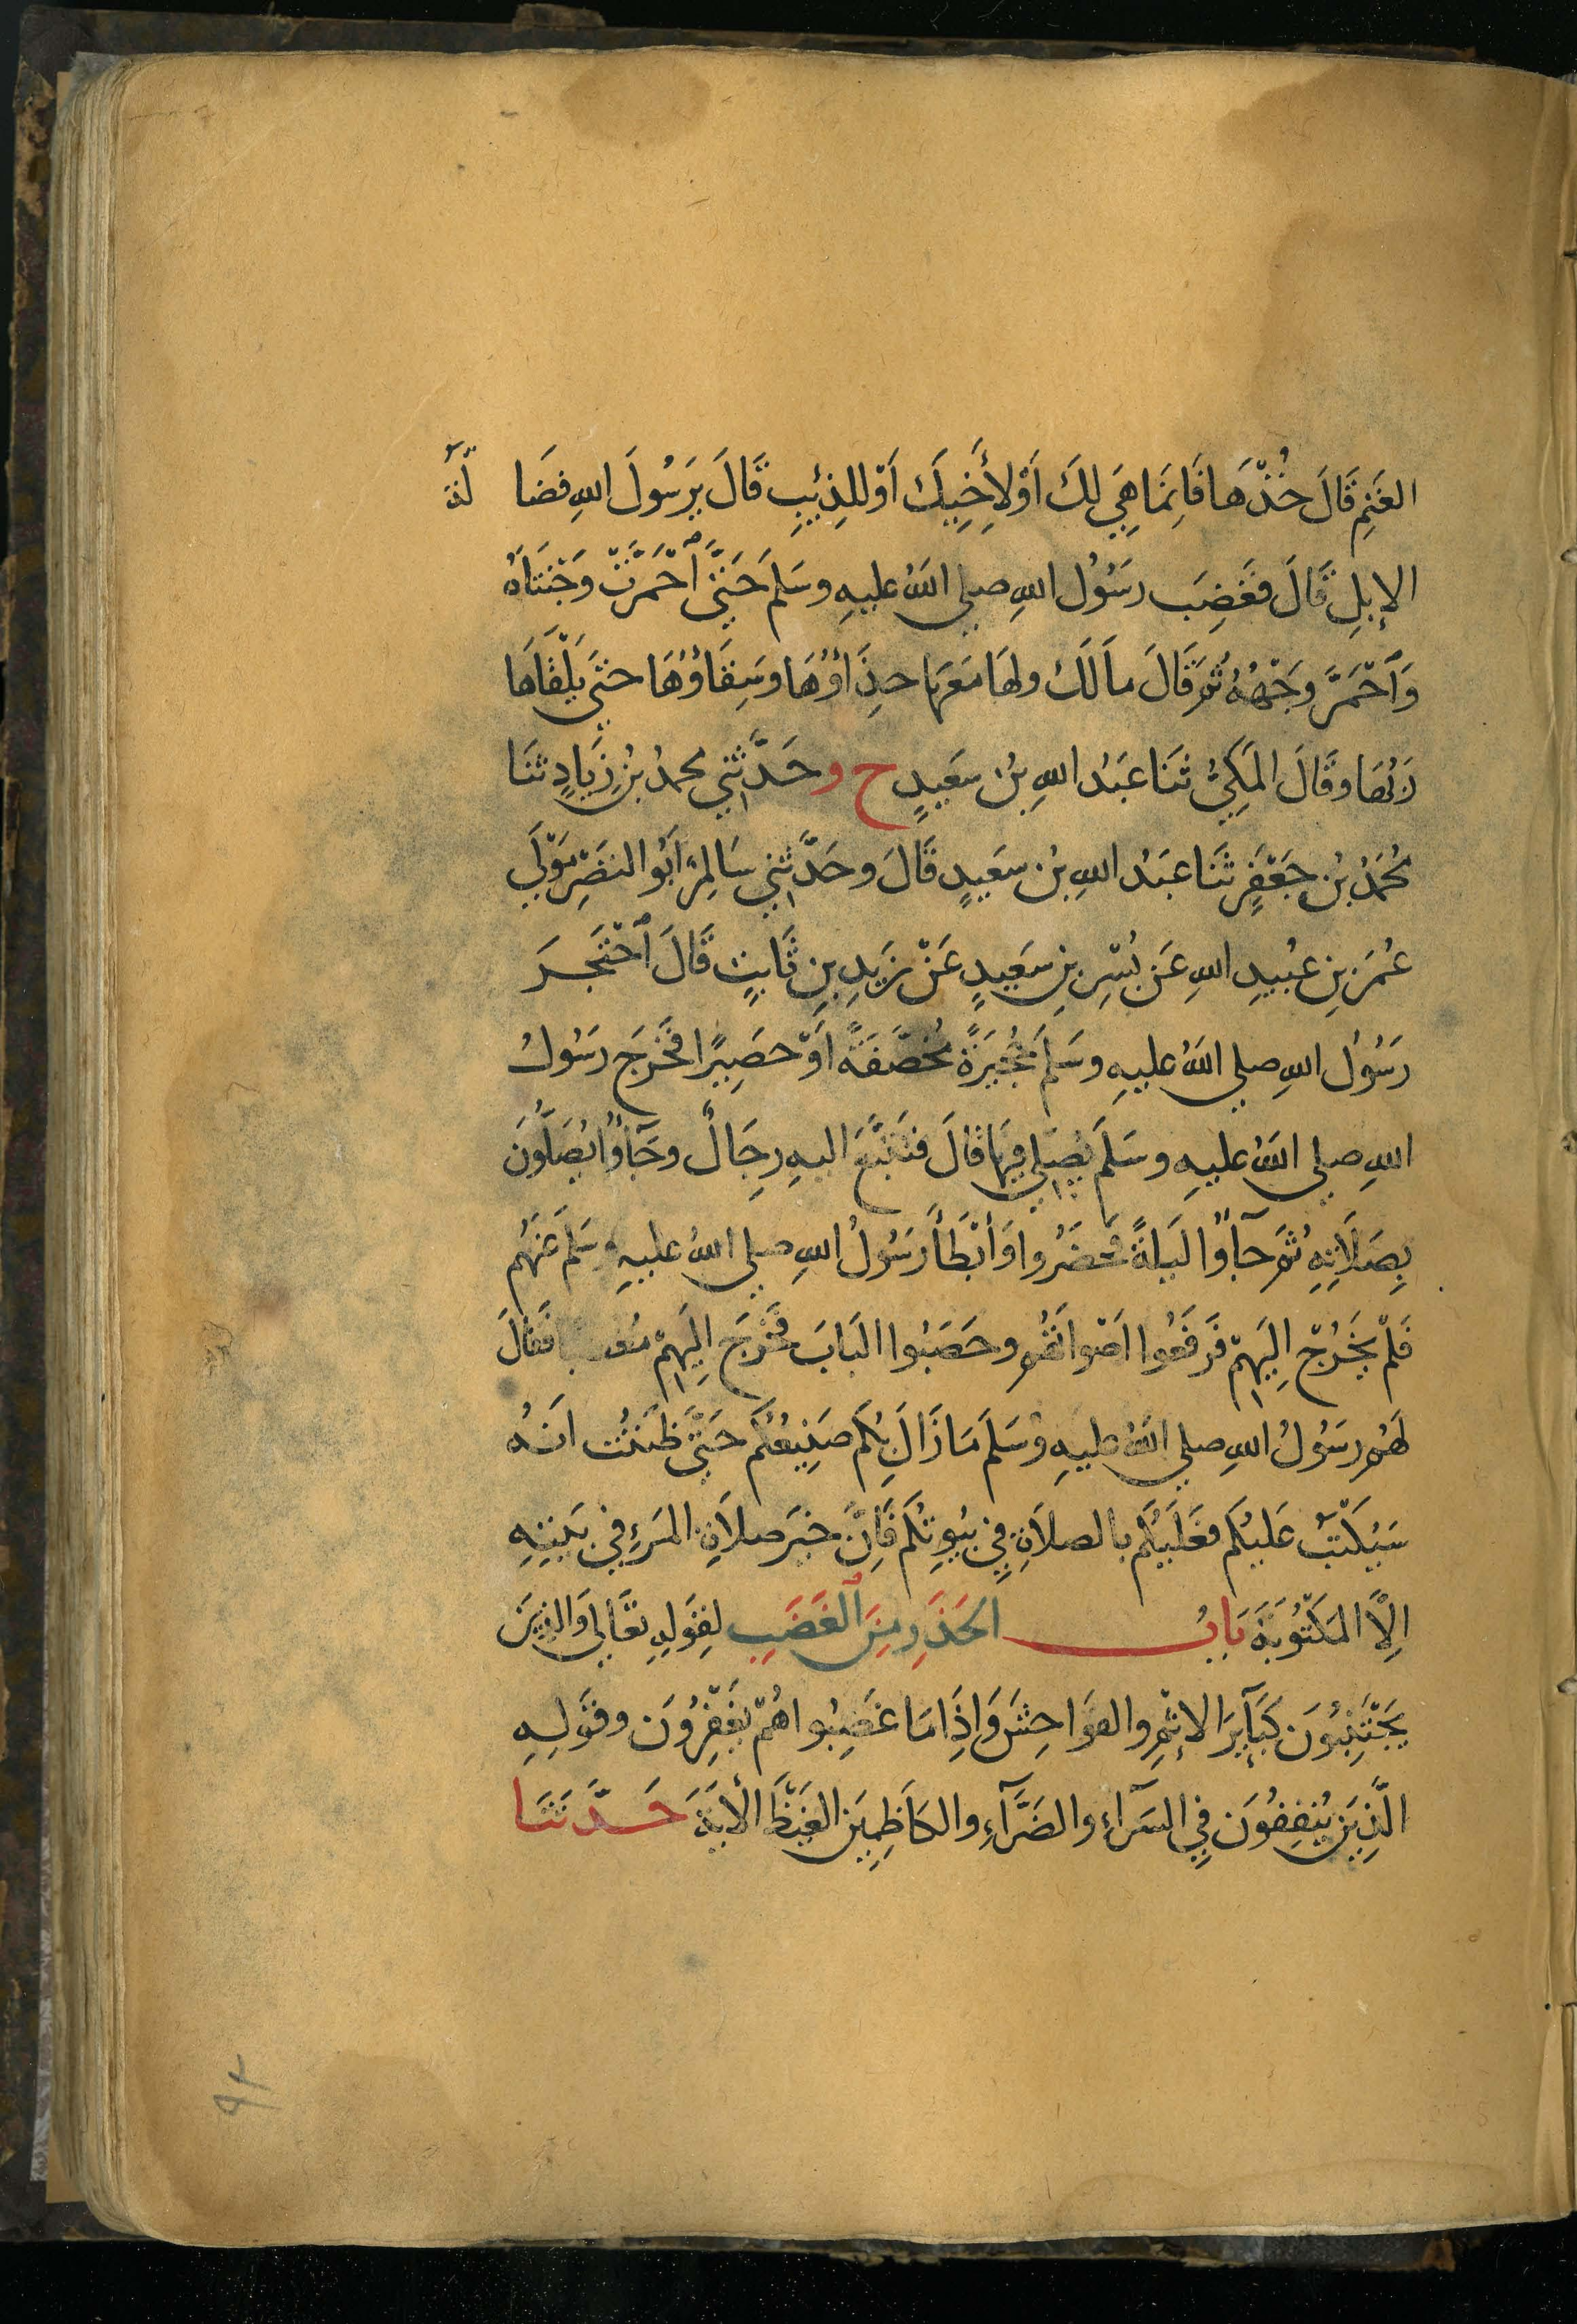 الغَنَمِ قَالَ خُذْهَا فَإِنَّمَا هِيَ لَكَ أَوْ لِأَخِيكَ أَوْ لِلذِئْبِ قَالَ يَرَسُولَ اللهِ فَضَا لَّةُ
الإِبِلِ قَالَ فَغَضِبَ رَسُولُ اللهِ صلى اللهُ عليهِ وسَلمَ حَتَّى ٱحْمَرَّتْ وَجْنَتَاهُ
وَٱحْمَرَّ وَجْهُهُ ثُمَّ قَالَ مَا لَكَ ولَهَا مَعَهَا حِذَاؤُهَا وسَقَاؤُهَا حتَّى يَلْقَاهَا
رَبُّهَا وقَالَ المَكِيُّ ثَنَا عَبْدُ اللهِ بْنُ سَعِيدٍ ح وحَدَّثَنِي محمدُ بْنُ زِيَادٍ ثَنَا
مُحَمَّدُ بْنُ جَعْفَرٍ ثَنَا عَبْدُ اللهِ بْنُ سَعِيدٍ قَالَ وحَدَّثَنِي سَالِمٌ أَبُو النَضْرِ مَوْلَى
عُمَرَ بْنِ عُبَيدِ اللهِ عَنْ بُسْرِ بنِ سَعِيدٍ عَنْ زَيدِ بنِ ثَابِتٍ قَالَ ٱحْتَجَرَ
رَسُولُ اللهِ صلى اللهُ عليهِ وسَلمَ حُجَيْرَةً مُخَصَّفَةً أَوْ حَصِيرًا فَخَرَجَ رَسُولُ
اللهِ صلى اللهُ عليهِ وسَلَمَ يُصَلِي فِيهَا قَالَ فتَتَبَّعَ اليهِ رِجَالٌ وجَآؤُا يُصَلُّونَ
بِصَلَاتِهِ ثُمَّ جَآؤُا لَيلَةً فحَضَرُوا وَأَبْطَأَ رَسُولُ اللهِ صلى اللهُ عليهِ وسَلمَ عَنْهُم
فَلَمْ يَخْرُجْ إِلَيهِمْ فَرَفَعُوا أَصْوَاتَهُم وحَصَبُوا البَابَ فخَرَجَ إِلَيهِمْ فَقَالَ
لَهُم رَسُولُ اللهِ صلى اللهُ عليهِ وسَلَمَ مَا زَالَ بِكُم صَنِيعُكُم حَتَّى ظَنَنْتُ أَنَّهُ
سَيُكْتَبُ عَلَيكُم فعَلَيكُم بالصلاَةِ فِي بيُوتِكُم فَإِنَّ خَيرَ صلاَةِ المَرْءِ في بَيتِهِ
إِلَّا المَكْتُوبَةَ بَابُ الحَذَرِ مِنَ ٱلغَضَبِ لِقَولِهِ تَعَالَى وَالذِينَ
يَجْتَنِبُونَ كَبَآئِرَ الإِثْمِ والفَوَاحِشَ وَإِذَا مَا غَضِبُوا هُمْ يَغْفِرُونَ وقَولِهِ
الَّذِينَ يُنفِقُونَ فِي السَرَآءِ والضَرَّآءِ والكَاظِمِينَ الغَيْظَ الأيَةَ حَدَّثَنَا
٩٢